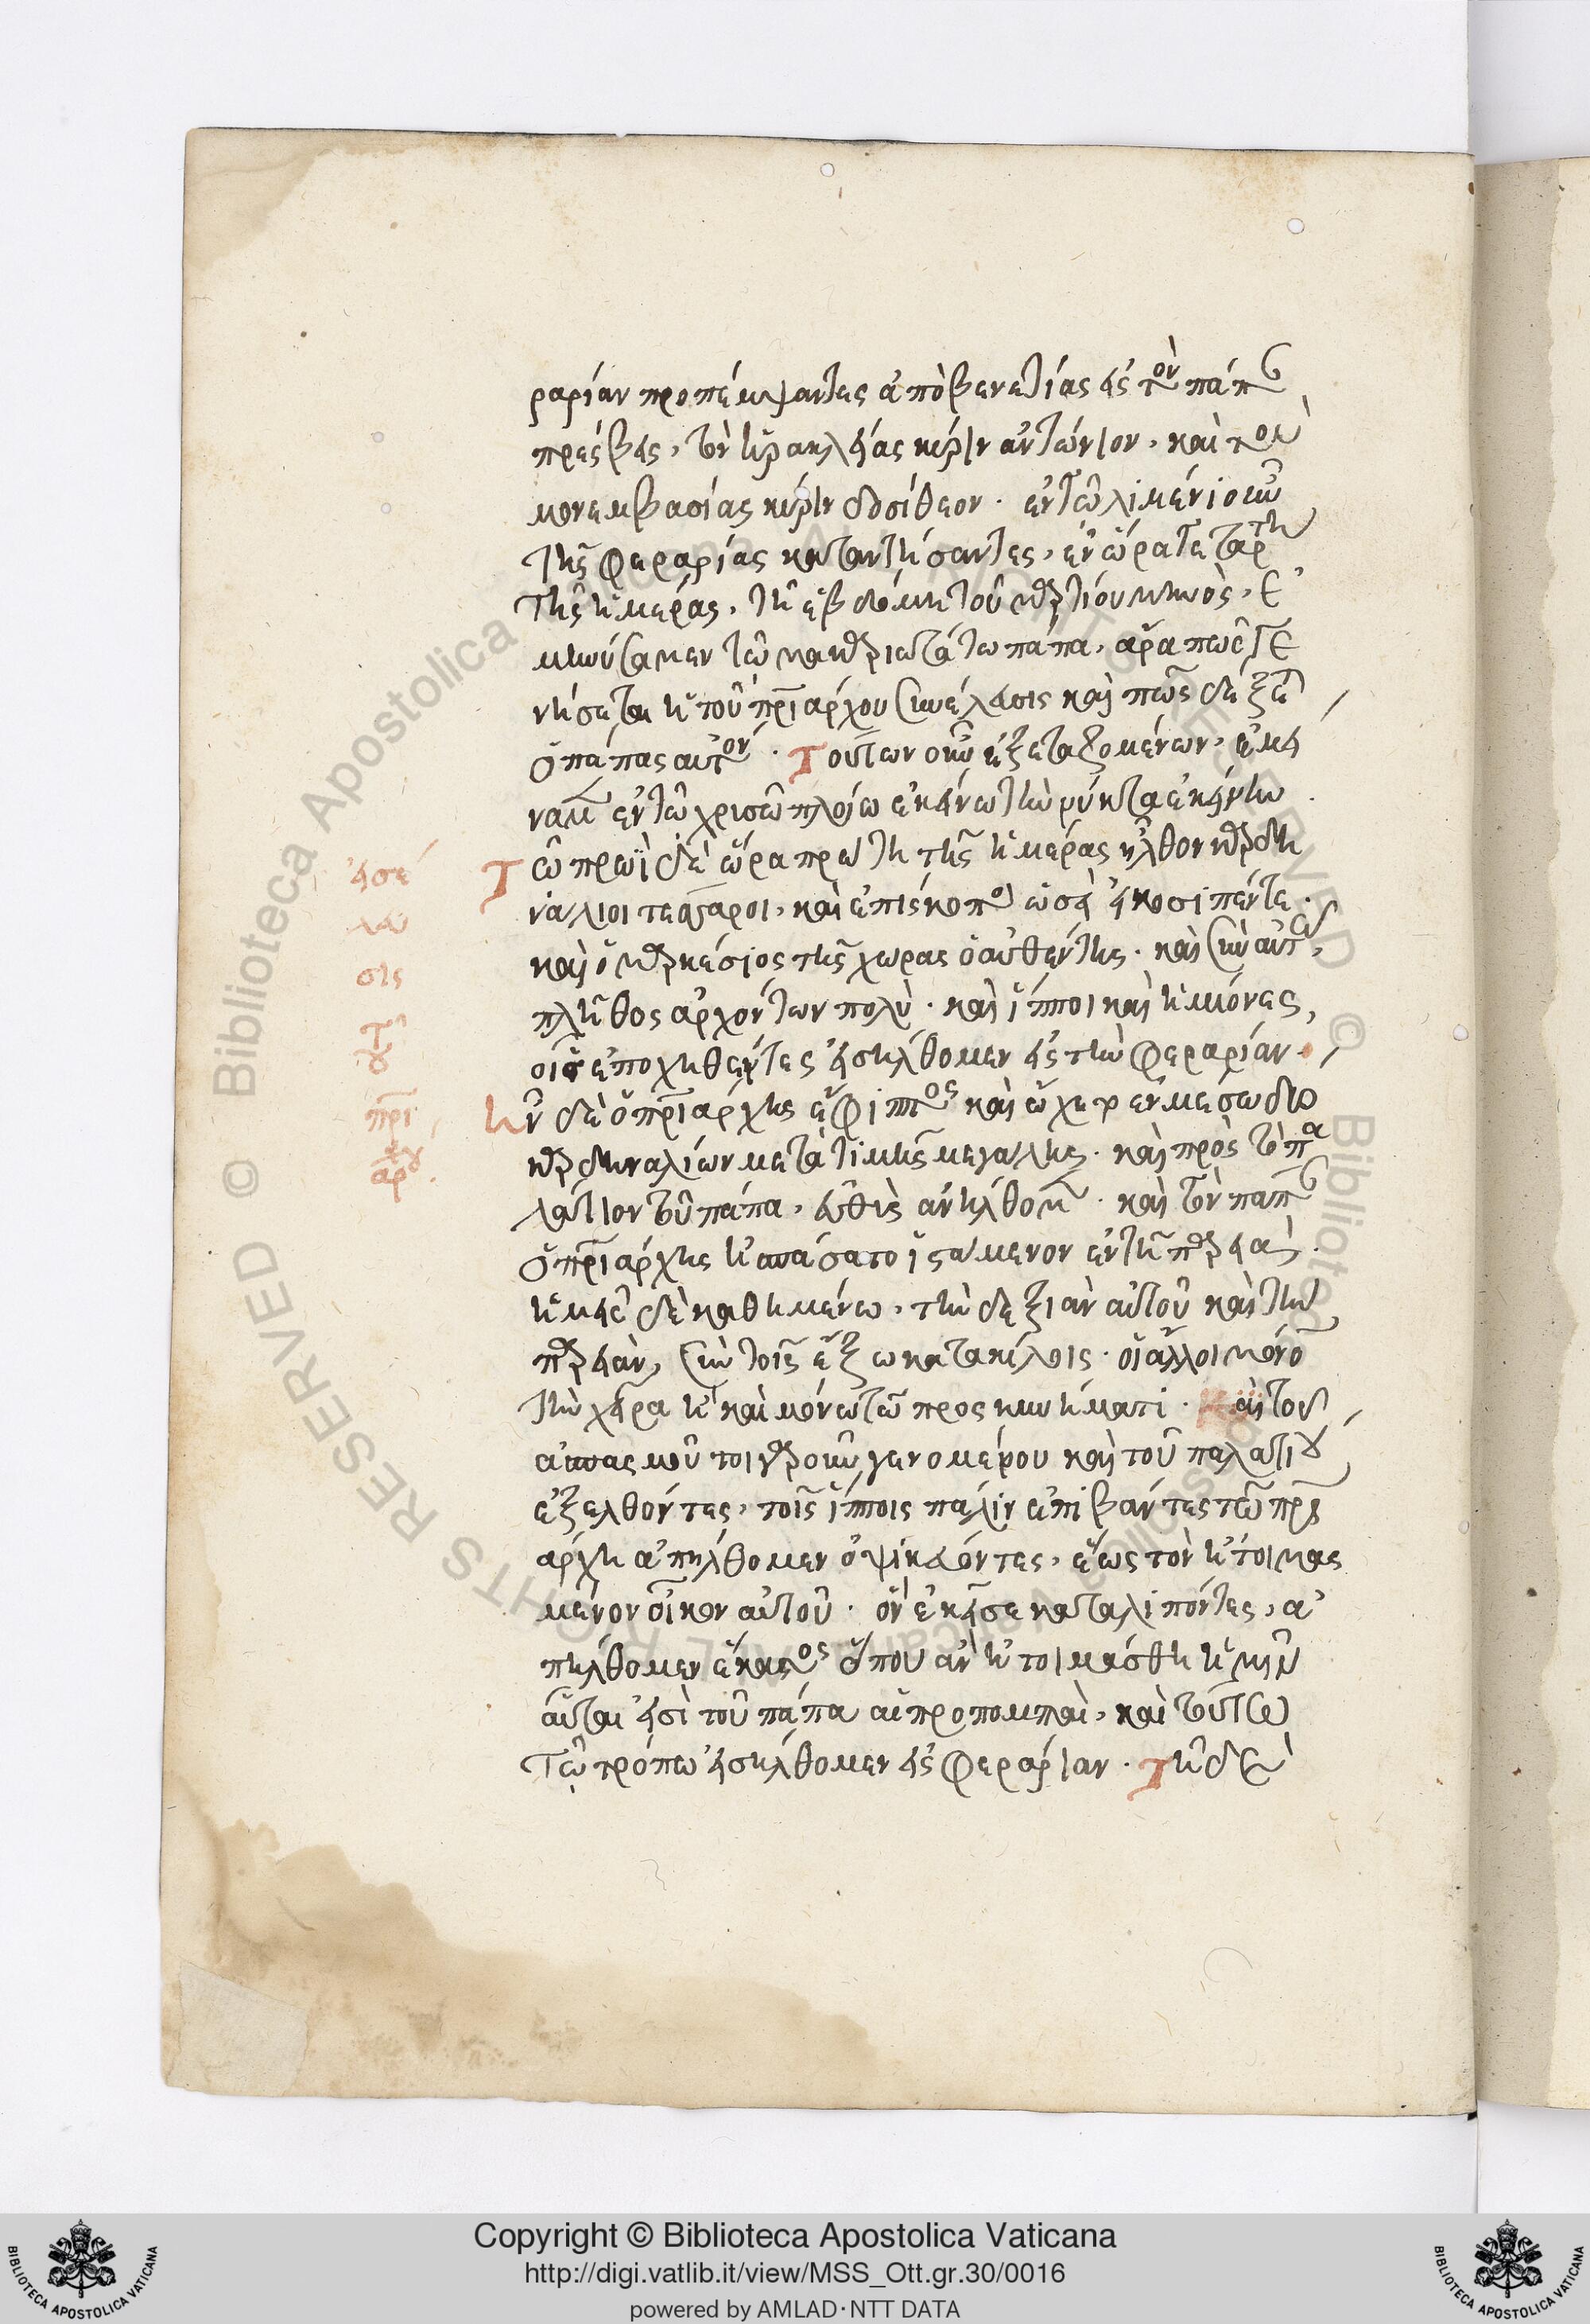 ραρίαν προπέμψαντες ἀπὸ βενετίας εἰς τὸν πάπαν
πρέσβεις, τὸν ἡρακλείας κύριν ἀντώνιον, καὶ τὸν
μονεμβασίας κύριν δοσίθεον. ἐν τῷ λιμένι οὖν
τῆς φεραρίας καταντήσαντες, ἐν ὥρα τετάρτη
τῆς ἡμέρας, τῇ ἑβδόμη τοῦ μαρτίου μηνὸς, ἐ
μηνύσαμεν τῶ μακαριωτάτω πάπα, ἄρα πῶς γε
νήσεται ἡ τοῦ πριάρχου συνέλευσις καὶ πῶς δέξεται
ὁ πάπας αὐτόν. Τούτων οὖν ἐξεταζομένων, ἐμεί
ναμεν ἐν τῶ χρισῶ πλοίω ἐκείνω τὴν νύκτα ἐκείνην
Τῶ πρωῒ δὲ ὥρα πρώτη τῆς ἡμέρας ἦλθον καρδη
νάλιοι τέσσαροι, καὶ ἐπίσκοποι ὡσεὶ εἴκοσι πέντε.
καὶ ὁ μαρκέσιος τῆς χώρας ὁ αὐθέντης. καὶ σὺν αὐτοῖς
πλῆθος ἀρχόντων πολύ. καὶ ἵπποι καὶ ἡμιόνες,
οἷς ἐποχηθέντες εἰσήλθομεν εἰς τὴν φεραρίαν.
ἦν δὲ ὁ πριάρχης ἔφιππος καὶ εἴχετο ἐν μέσω δύο
καρδηναλίων μετὰ τιμῆς μεγάλης. καὶ πρὸς τὸ πα
λάτιον τοῦ πάπα, εὐθὺς ἀνήλθομεν. καὶ τὸν πάπαν
ὁ πριάρχης ἠσπάσατο ἱστάμενον ἐν τῇ παρειᾷ.
ἡμεῖς δὲ καθημένω, τὴν δεξιὰν αὐτοῦ καὶ τὴν
παρειὰν, σὺν τοῖς ἐξωκατακήλοις. οἱ ἄλλοι μόνον
τὴν χεῖρα ἢ καὶ μόνω τῶ προσκυνήματι. καὶ τοῦ
ἀσπασμοῦ τοιγαροῦν γενομένου καὶ τοῦ παλατίου
ἐξελθόντες, τοῖς ἵπποις πάλιν ἐπιβάντες τῶ πρι
άρχη ἀπήλθομεν ὀψικεύοντες, ἕως τὸν ἡτοιμασ
μένον οἶκον αὐτοῦ. ὃν ἐκεῖσε καταλιπόντες, ἀ
πήλθομεν ἕκαστος ὅπου ἂν ἡτοιμάσθη ἡμῖν
αὗται εἰσὶ τοῦ πάπα αἱ προπομπαὶ, καὶ τούτω
τῷ τρόπω εἰσήλθομεν εἰς φεραρίαν. Τῇ δὲ
εἰσέ
λευ
σις
τοῦ
πρι
άρχου
Copyright © Biblioteca Apostolica Vaticana
http://digi.vatlib.it/view/MSS_Ott.gr.30/0016
powered by AMLAD·NTT DATA